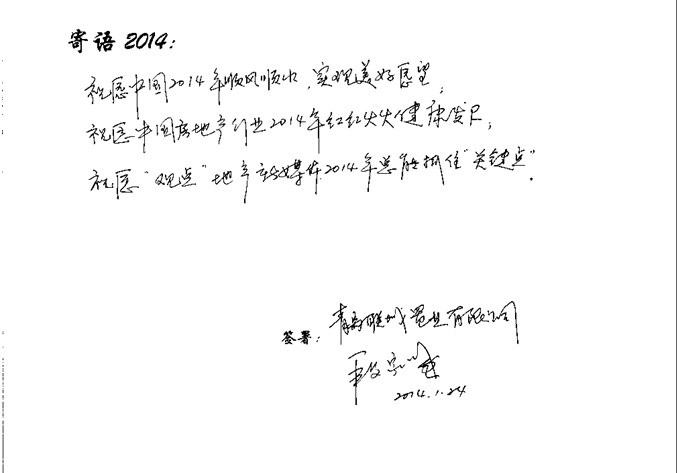 寄语 2014：
祝愿中国2014年顺风顺水，实现美好愿望；
祝愿中国房地产行业2014年红红火火健康发展；
祝愿“观点”地产新媒体2014年总能抓住“关键点”.
签署：青岛 城置业有限公司
2014.1.24